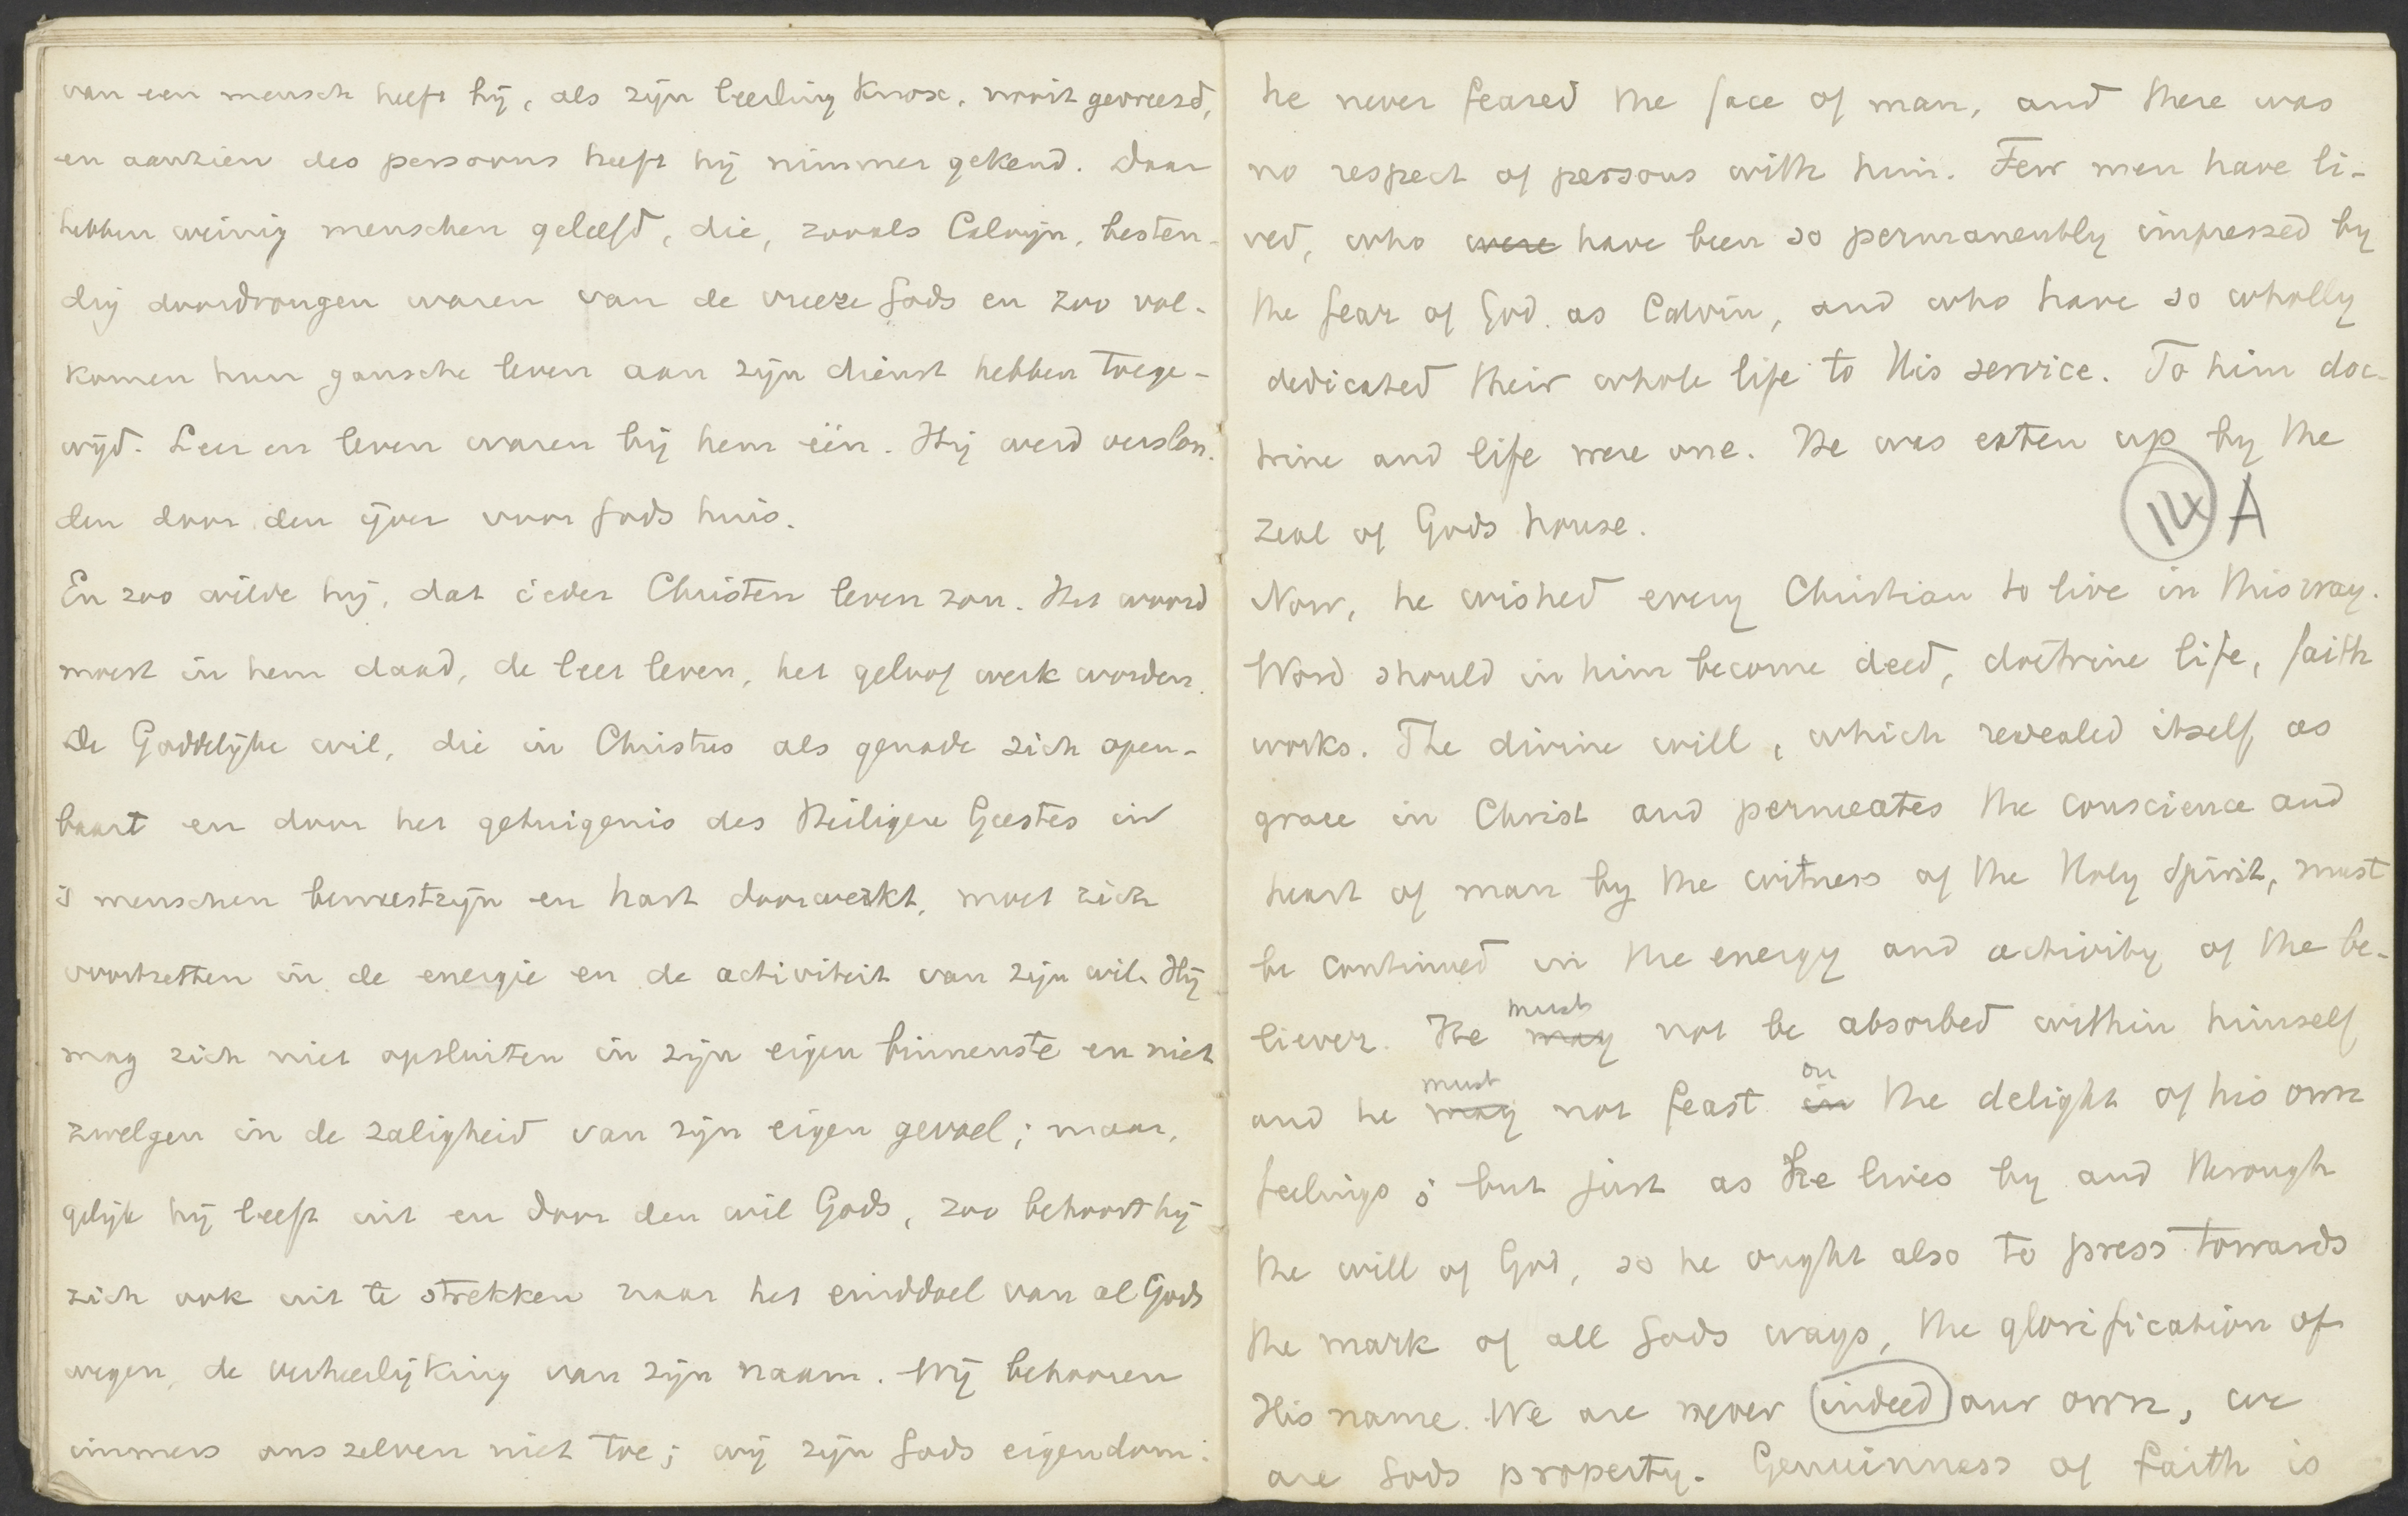 van een mensch heeft hij, als zijn leerling Knox, nooit gevreesd,
en aanzien des persoons heeft hij nimmer gekend. Daar
hebben weinig menschen geleefd, die, zooals Calvijn, besten-
dig doordrongen waren van de vreeze Gods en zoo vol-
komen hun gansche leven aan zijn dienst hebben toege-
wijd. Leer en leven waren bij hem één. Hij werd verslon-
den door den ijver voor Gods huis.
En zoo wilde hij, dat ieder Christen leven zou. Het woord
moest in hem daad, de leer leven, het geloof werk worden.
De Goddelijke wil, die in Christus als genade zich open-
baart en door het getuigenis des Heiligen Geestes in
's menschen bewustzijn en hart doorwerkt, moet zich
voortzetten in de energie en de activiteit van zijn wil. Hij
mag zich niet opsluiten in zijn eigen binnenste en niet
zwelgen in de zaligheid van zijn eigen gevoel; maar,
gelijk hij leeft uit en door den wil Gods, zoo behoort hij
zich ook uit te strekken naar het einddoel van al Gods
wegen, de verheerlijking van zijn naam. Wij behooren
immers ons zelven niet toe; wij zijn Gods eigendom.
he never feared the face of man, and there was
no respect of persons with him. Few men have li-
ved, who were have been so permanently impressed by
the fear of God as Calvin, and who have so wholly
dedicated their whole life to His service. To him doc-
trine and life were one. He was eaten up by the
zeal of Gods house.
14 A
Now, he wished every Christian to live in this way.
Word should in him become deed, doctrine life, faith
works. The divine will, which revealed itself as
grace in Christ and permeates the conscience and
heart of man by the witness of the Holy Spirit, must
be continued in the energy and activity of the be-
must
liever. He may not be absorbed within himself
must on
and he may not feast in the delight of his own
feelings; but just as he lives by and through
the will of God, so he ought also to press towards
the mark of all Gods ways, the glorification of
His name. We are never indeed our own, we
are Gods property. Genuinness of faith is